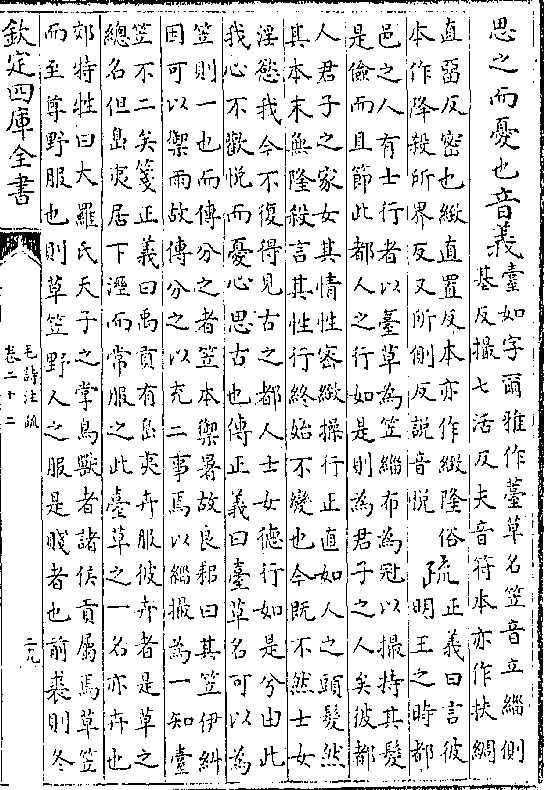 思之而憂也音義臺如字爾雅作薹草名笠音立緇側
基反撮七活反夫音符本亦作扶綢
直畱反密也緻直置反本亦作緻隆俗
本作降殺所界反又所側反説音悦
疏正義曰言彼
明王之時都
邑之人有士行者以臺草為笠緇布為冠以撮持其髮
是儉而且節此都人之行如是則為君子之人矣彼都
人君子之家女其情性密緻操行正直如人之頭髮然
其本末無隆殺言其性行終始不變也今既不然士女
淫慾我今不復得見古之都人士女德行如是兮由此
我心不歡悦而憂心思古也傳正義曰臺草名可以為
笠則一也而傳分之者笠本禦暑故良耜曰其笠伊糾
因可以禦雨故傳分之以充二事焉以緇撮為一知臺
笠不二矣箋正義曰禹貢有島夷卉服彼卉者是草之
總名但島夷居下溼而常服之此臺草之一名亦卉也
郊特牲曰大羅氏天子之掌鳥獸者諸侯貢屬焉草笠
而至尊野服也則草笠野人之服是賤者也前裘則冬
欽定四庫全書
毛詩注疏
卷二十二
二九